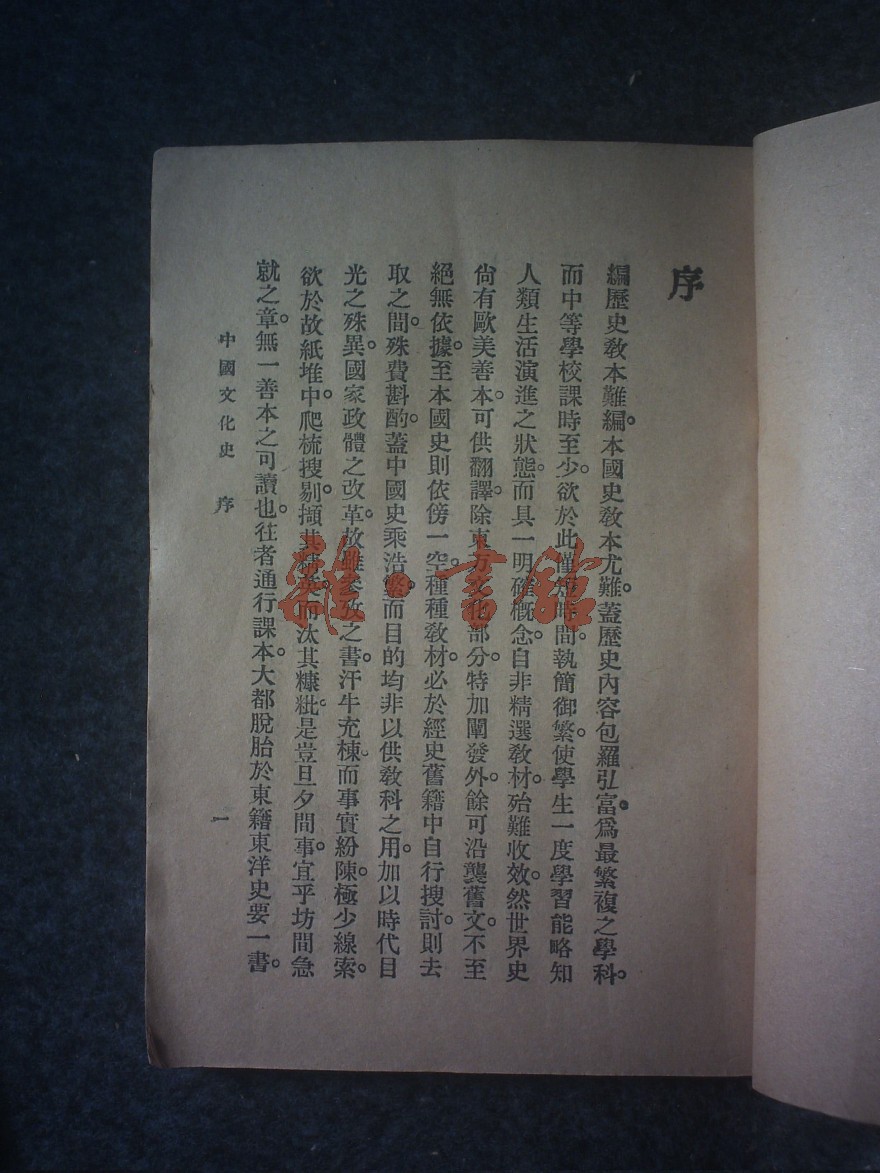 序
編歷史敎本難編。本國史敎本尤難。蓋歷史內容包羅弘富。爲最繁複之學科。
而中等學校課時至少。欲於此僅短時間。執簡御繁。使學生一度學習能略知
人類生活演進之狀態。而具一明確概念。自非精選敎材。殆難收效。然世界史
尙有歐美善本。可供翻譯。除東方文化部分。特加闡發。外餘可沿襲舊文。不至
絕無依據。至本國史則依傍一空。種種敎材。必於經史舊籍中自行搜討。則去
取之間。殊費斟酌。蓋中國史乘浩繁。而目的均非以供敎科之用。加以時代目
光之殊異。國家政體之改革。故雖參攷之書。汗牛充棟。而事實紛陳。極少線索。
欲於故紙堆中。爬梳搜剔。擷其精英。而汰其糠粃。是豈旦夕間事。宜乎坊間急
就之章。無一善本之可讀也。往者通行課本。大都脫胎於東籍東洋史要一書。
中國文化史 序 一
雜書館